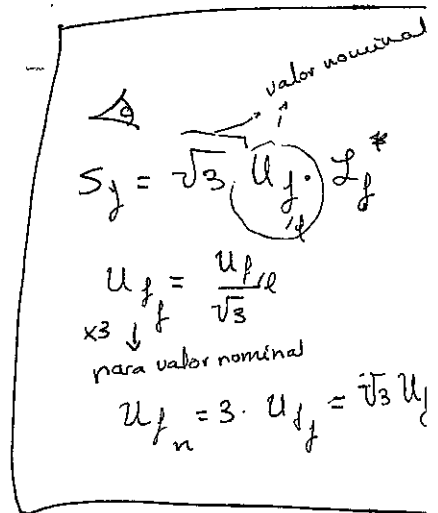 valor nominal
S_f = √3 . U_f/l . I_f*
U_f_f = U_f/l / √3
x3 ↓
para valor nominal
U_f_n = 3 . U_f_f = √3 U_f